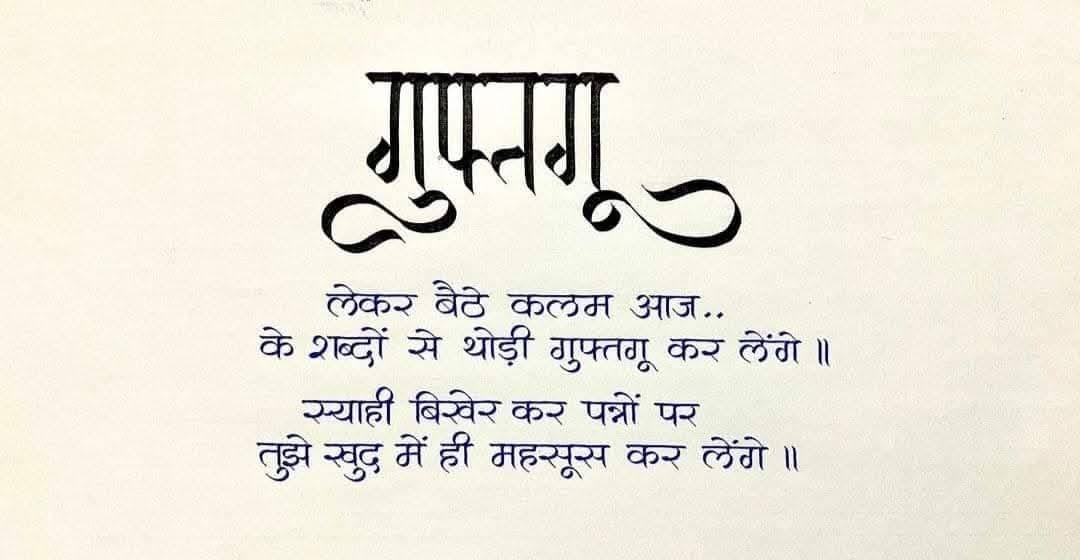 गुफ्तगू
लेकर बैठे कलम आज..
के शब्दों से थोड़ी गुफ्तगू कर लेंगे ॥
स्याही बिखेर कर पन्नों पर
तुझे खुद में ही महसूस कर लेंगे ॥